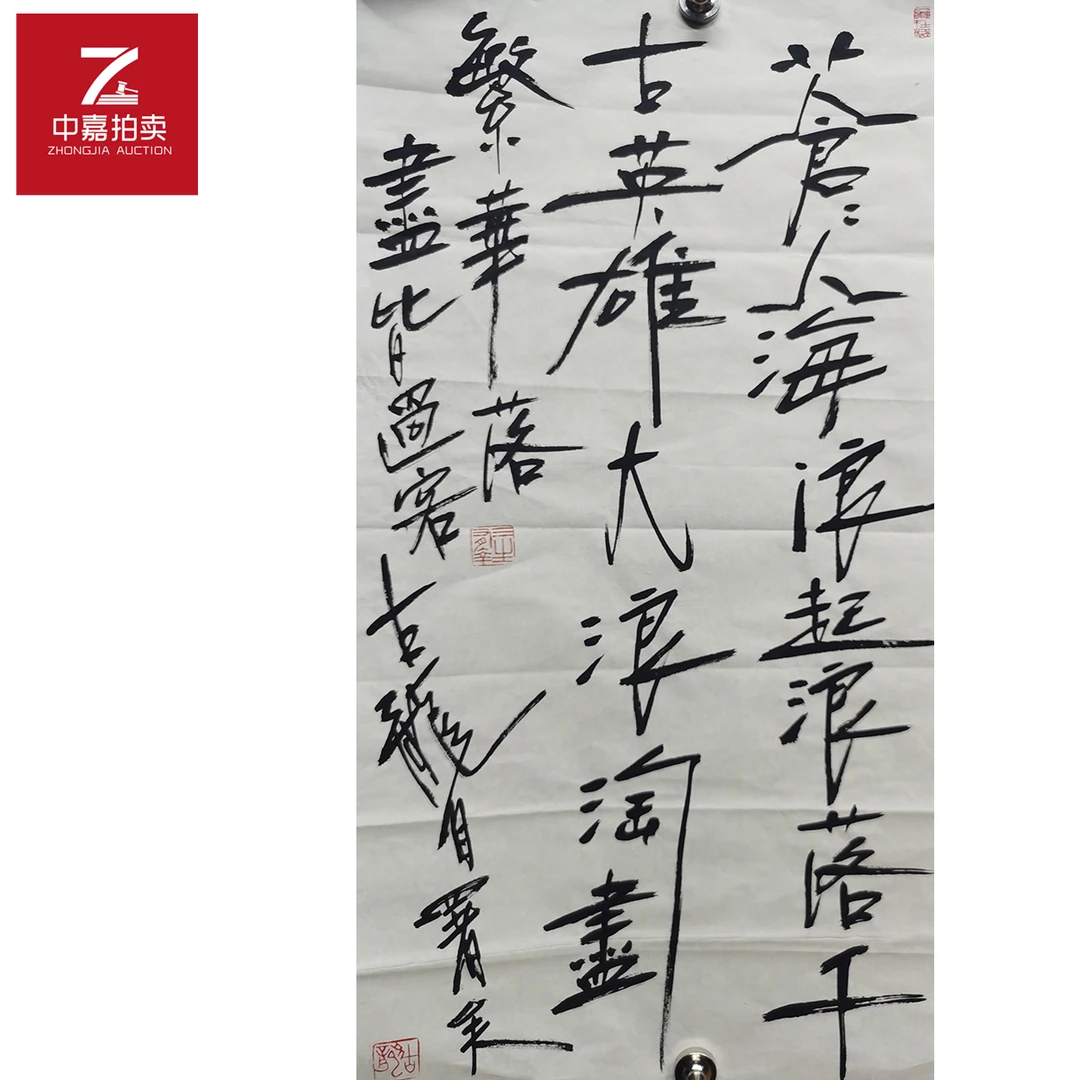 中嘉拍卖
ZHONGJIA AUCTION
蒼〻人海浪起浪落千
古英雄大浪淘盡
繁華落
盡皆過客古龍自署